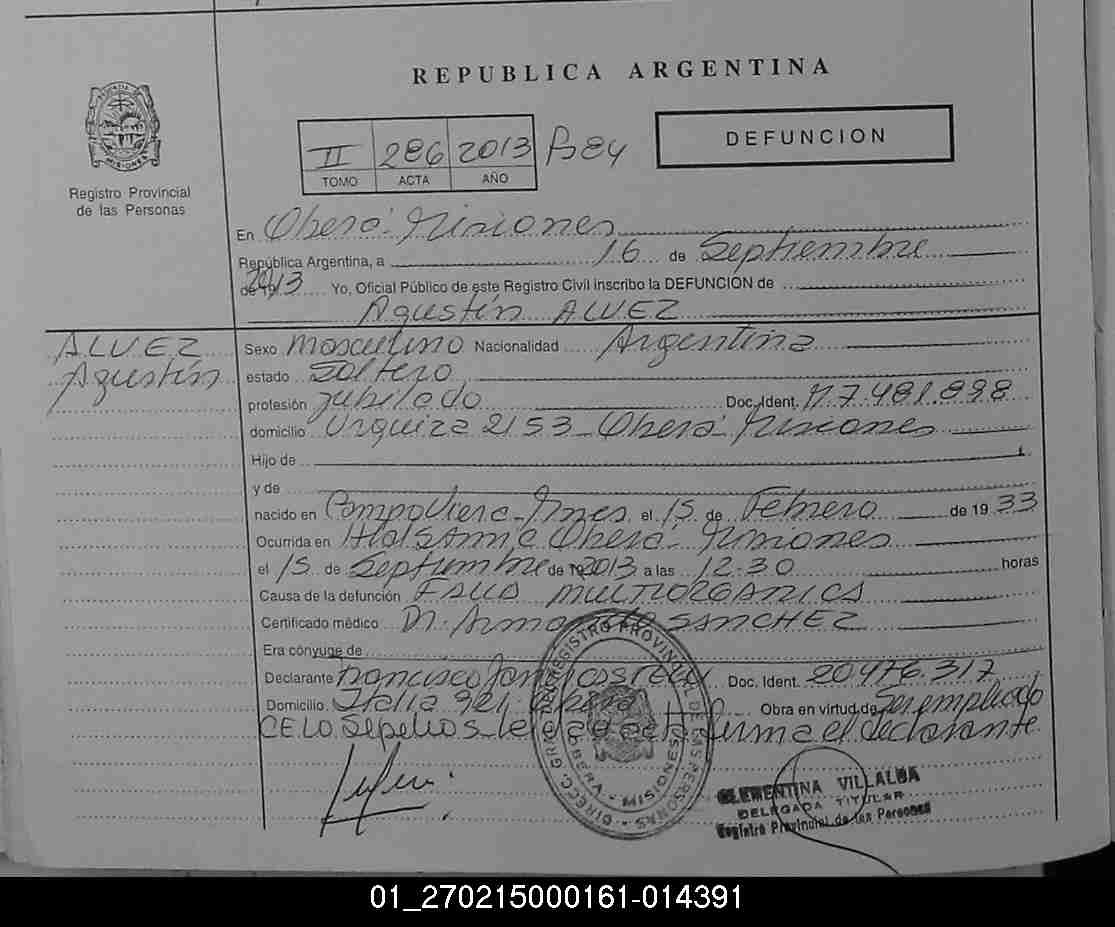 REPUBLICA ARGENTINA
DEFUNCION
II 286 2013
TOMO ACTA AÑO
Registro Provincial
de las Personas
En Oberá Misiones
República Argentina, a 16 de Septiembre
de 2013 Yo, Oficial Público de este Registro Civil inscribo la DEFUNCION de
Agustín ALVEZ
ALVEZ
Agustín
Sexo Masculino Nacionalidad Argentina
estado Soltero
profesión Jubilado Doc. Ident. M.7.481.898
domicilio Urquiza 2153 Oberá Misiones
Hijo de
y de
nacido en Campo Viera - Mnes el 15 de Febrero de 1933
Ocurrida en Oberá - Misiones
el 15 de Septiembre de 2013 a las 12:30 horas
Causa de la defunción FALLA MULTIORGANICA
Certificado médico Dr. Armando SANCHEZ
Era cónyuge de
Declarante Francisco Doc. Ident. 20.476.317
Domicilio Italia 921 Oberá Obra en virtud de Ser empleado
CELO Sepelios leída acta firma el declarante
DIRECC. GRAL. REGISTRO PROVINCIAL DE LAS PERSONAS
OBERA - MISIONES
CLEMENTINA VILLALBA
DELEGADA TITULAR
Registro Provincial de las Personas
01_270215000161-014391